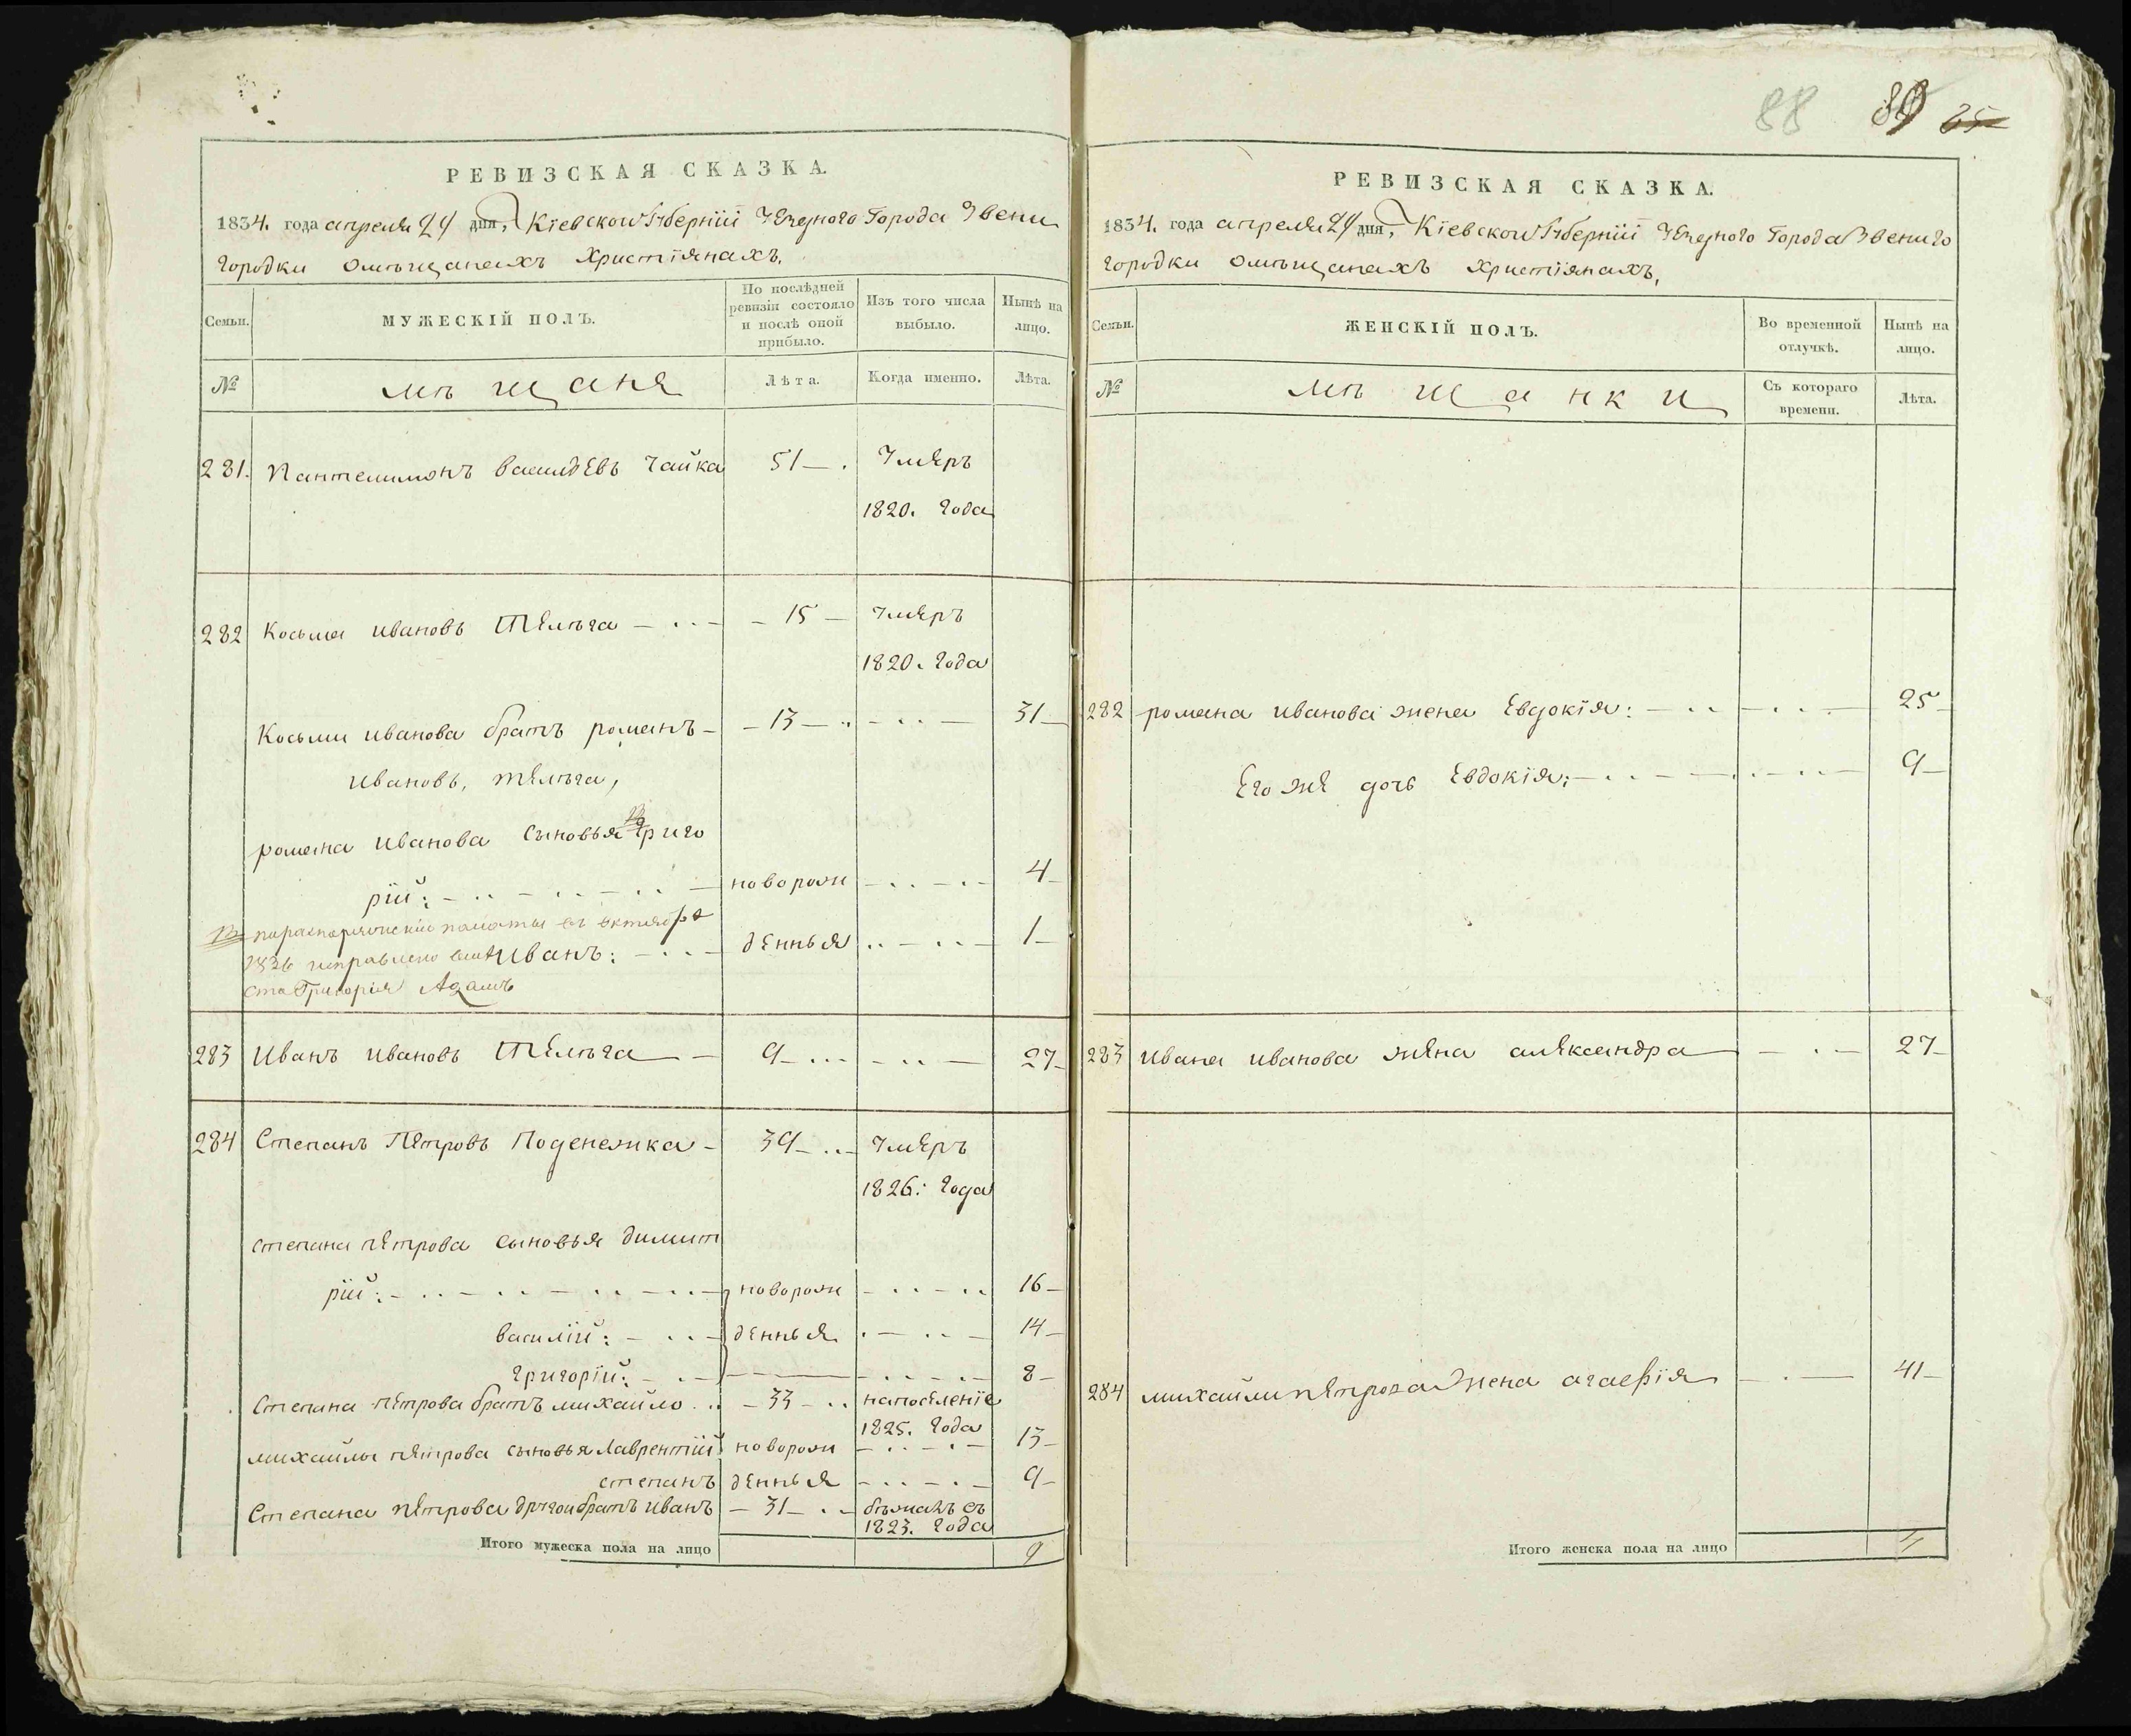 РЕВИЗСКАЯ СКАЗКА.
1834. года апреля 24 дня, Кіевской Губерніи Уезднаго Города Звени
городки о мѣщанахъ християнахъ,
Семьи.
МУЖЕСКІЙ ПОЛЪ.
По послѣдней ревизіи состояло и послѣ оной прибыло.
Изъ того числа выбыло.
Нынѣ на лицо.
№
мѣщаня
Лѣта.
Когда именно.
Лѣта.
281. Пантелимонъ василдевъ Чайка 51 Умеръ
1820. года
282 Косьма ивановъ Телѣга 15 Умеръ
1820. года
Косьми иванова братъ романъ 13 31
ивановъ, телѣга,
романа иванова сыновья Григо
рій: новорож 4
иванъ: денныя 1
ста Григорія Адамъ
283 Иванъ ивановъ Телѣга 9 27
284 Степанъ Петровъ Поденежка 39 Умеръ
1826: года
степана петрова сыновья димит
рій: новорож 16
василій: денныя 14
григорій: 8
Степана петрова братъ михайло 33 напоселеніе
1825. года
михайлы петрова сыновья Лаврентій новорож 13
степанъ денныя 9
Степана петрова другой братъ иванъ 31 бѣжалъ съ
1823. года
Итого мужеска пола на лицо 9
88 89 85
РЕВИЗСКАЯ СКАЗКА.
1834. года апреля 24 дня, Кіевской Губерніи Уезднаго Города Звениго
городки о мѣщанахъ християнахъ,
Семьи.
ЖЕНСКІЙ ПОЛЪ.
Во временной отлучкѣ.
Нынѣ на лицо.
№
мѣщанки
Съ котораго времени.
Лѣта.
282 романа иванова жена Евдокія: 25
Его же дочь Евдокія: 9
283 ивана иванова жена александра 27
284 михайли петрова жена агафія 41
Итого женска пола на лицо